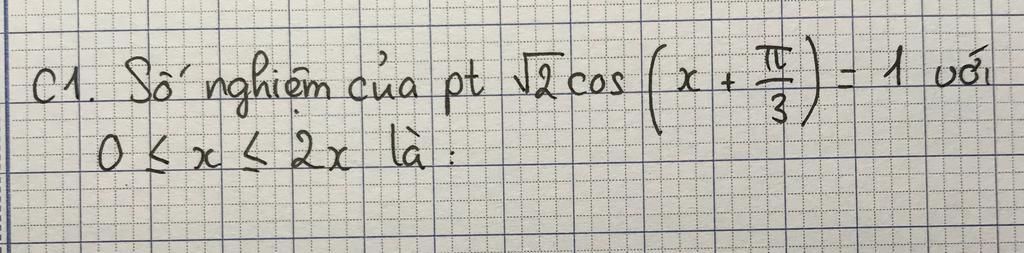 C1. Số nghiệm của pt √2 cos (x + π/3) = 1 với
0 ≤ x ≤ 2x là :